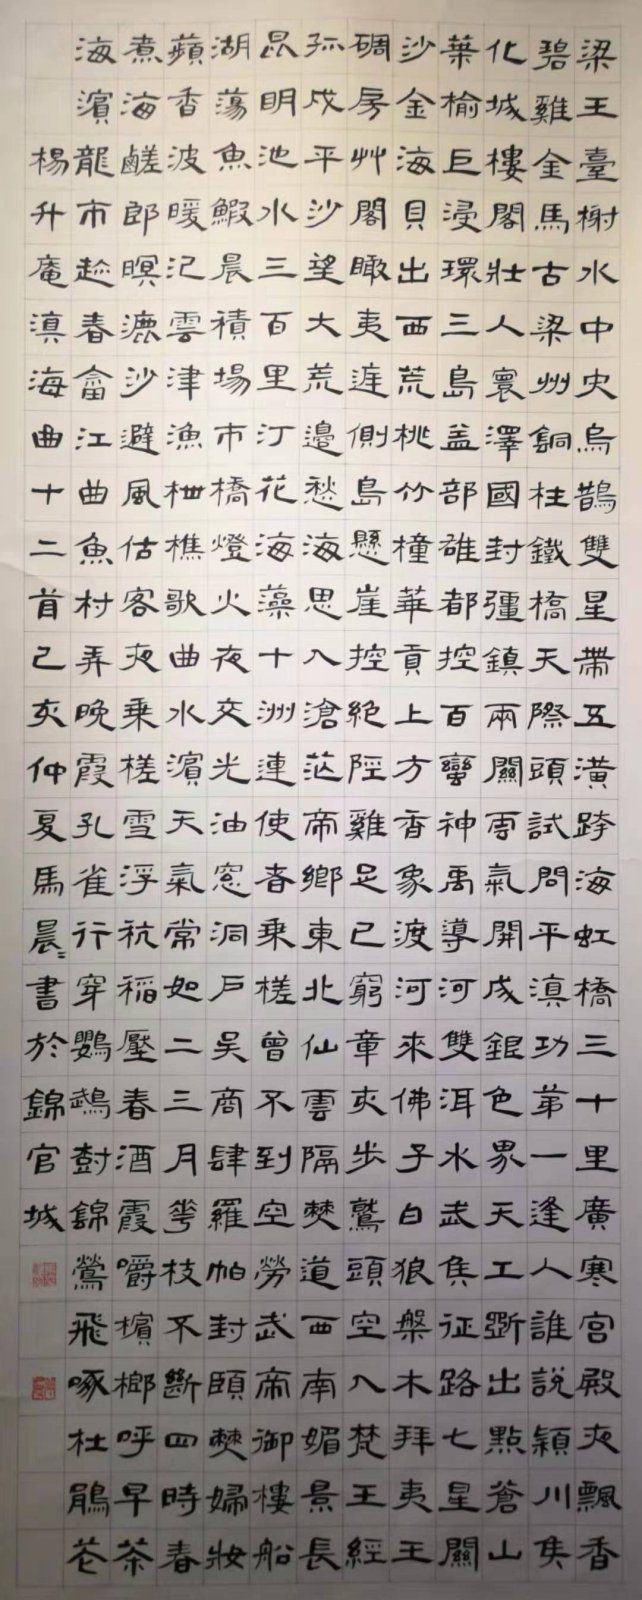 梁王臺榭水中央烏鵲雙星帶五潢跨海虹橋三十里廣寒宮殿夜飄香
碧雞金馬古梁州銅柱鐵橋天際頭試問平滇功第一逢人誰說潁川侯
化城樓閣壯人寰澤國封彊鎮兩關雲氣開成銀色界天工斲出點蒼山
葉榆巨浸環三島益部雄都控百蠻神禹導河雙洱水武侯征路七星關
沙金海貝出西荒桃竹橦華貢上方香象渡河來佛子白狼槃木拜夷王
碉房艸閣瞰夷庭側島懸崖控絕陘雞足已窮章亥步鷲頭空入梵王經
孤戍平沙望大荒邊愁海思入滄茫帝鄉東北仙雲隔僰道西南媚景長
昆明池水三百里汀花海藻十洲連使者乘槎曾不到空勞武帝御樓船
湖蕩魚鰕晨積場市橋燈火夜交光油窓洞戶吳商肆羅帕封頤僰婦妝
蘋香波暖氾雲津漁枻樵歌曲水濱天氣常如二三月花枝不斷四時春
煮海鹺郎暝漉沙避風估客夜乘槎雪浮秔稻壓春酒霞嚼檳榔呼早茶
海濱龍市趁春畬江曲魚村弄晚霞孔雀行穿鸚鵡樹錦鶯飛啄杜鵑花
楊升庵滇海曲十二首己亥仲夏馬晨〻書於錦官城